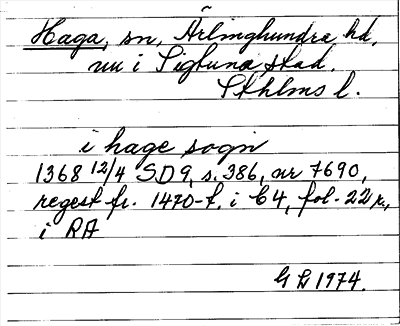 Haga, sn, Ärlinghundra hd,
nu i Sigtuna stad.
Sthlms l.
i hage sogn
1368 12/4 SD 9, s. 386, nr 7690,
regest fr. 1470-t. i C 4, fol. 22 r.,
i RA
G L 1974.